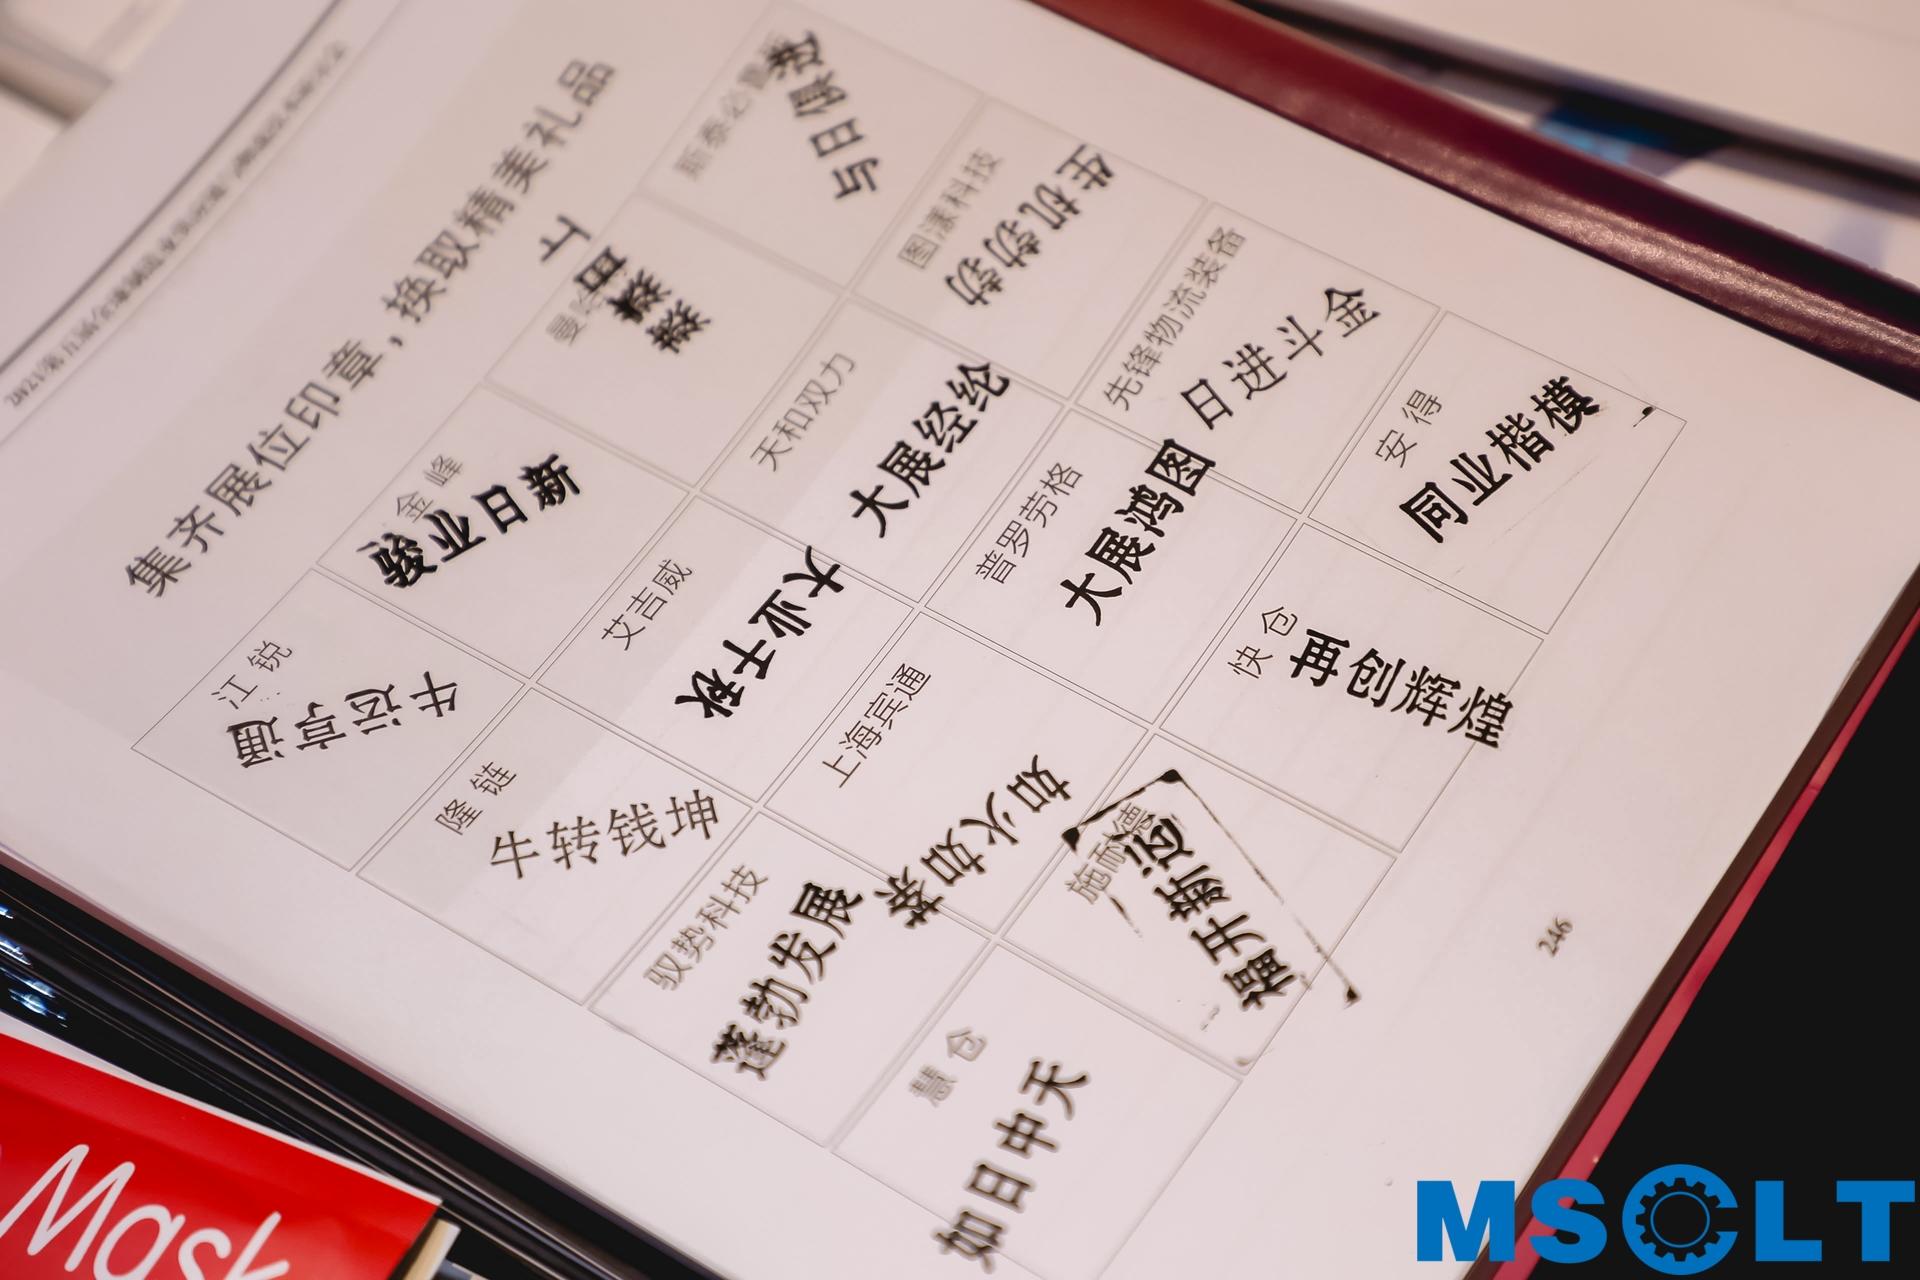 集齐展位印章,换取精美礼品
江锐
牛运亨通
金峰
骏业日新
蒸蒸日上
斯泰必鲁斯
与日俱进
隆链
牛转钱坤
艾吉威
大业千秋
天和双力
大展经纶
图漾科技
生机勃勃
驭势科技
蓬勃发展
上海宾通
如火如荼
普罗劳格
大展鸿图
先锋物流装备
日进斗金
慧仓
如日中天
施耐德
福开新运
快仓
再创辉煌
安得
同业楷模
246
Mask
MSCLT